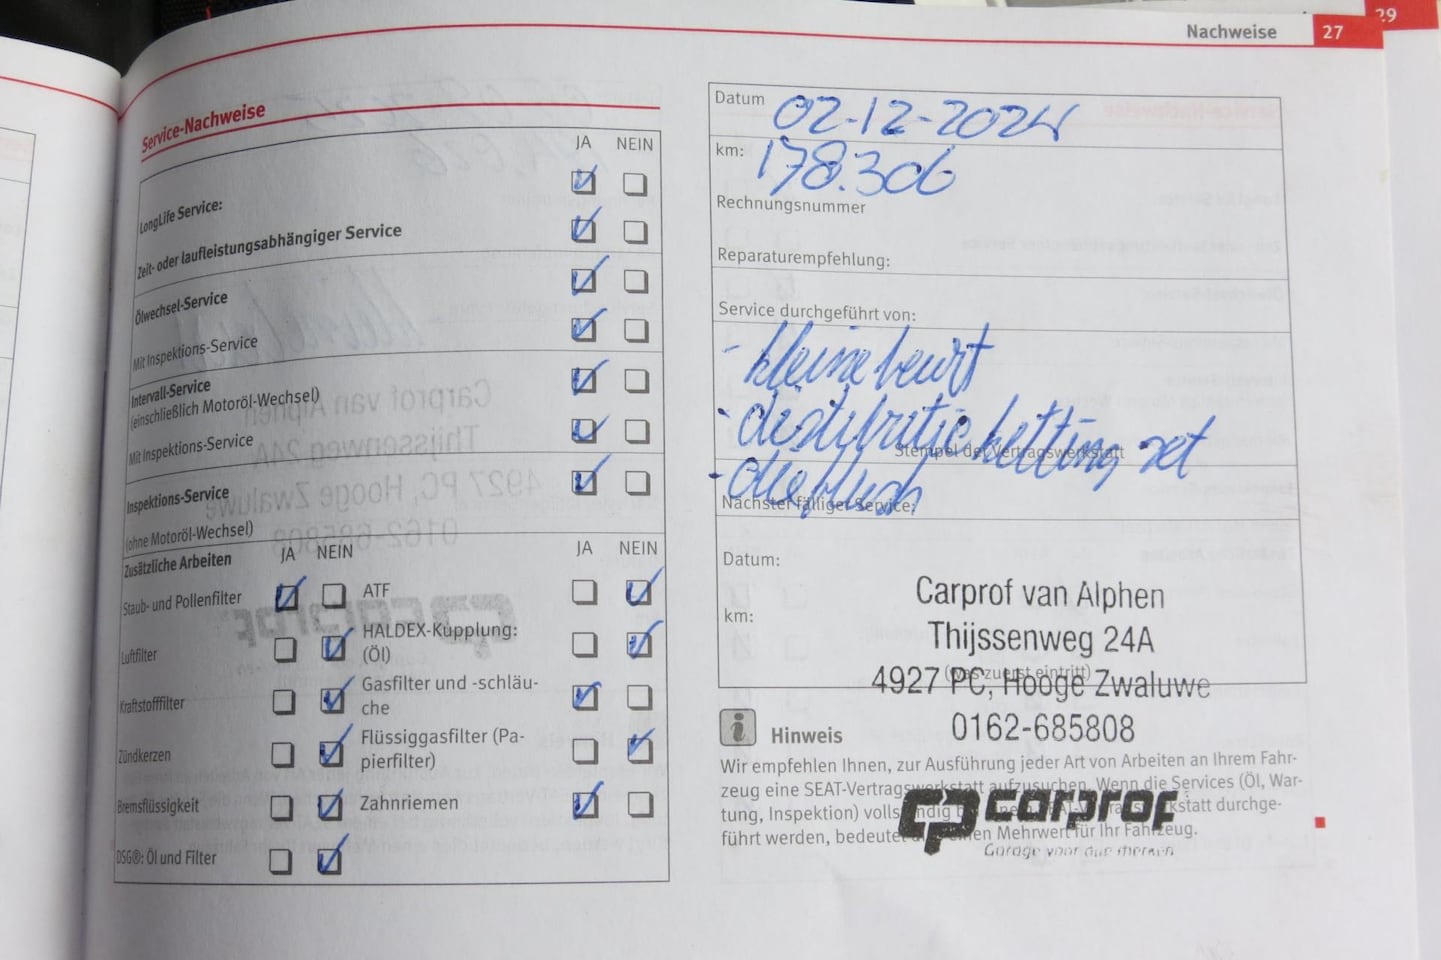 29
Nachweise 27
Service-Nachweise
JA NEIN
LongLife Service:
Zeit- oder laufleistungsabhängiger Service
Ölwechsel-Service
Mit Inspektions-Service
Intervall-Service
(einschließlich Motoröl-Wechsel)
Mit Inspektions-Service
Inspektions-Service
(ohne Motoröl-Wechsel)
Zusätzliche Arbeiten JA NEIN JA NEIN
Staub- und Pollenfilter ATF
Luftfilter HALDEX-Kupplung:
(Öl)
Kraftstofffilter Gasfilter und -schläu-
che
Zündkerzen Flüssiggasfilter (Pa-
pierfilter)
Bremsflüssigkeit Zahnriemen
DSG®: Öl und Filter
Datum 02-12-2024
km: 178.306
Rechnungsnummer
Reparaturempfehlung:
Service durchgeführt von:
- kleine beurt
- distributie ketting set
Stempel der Vertragswerkstatt
- olieflush
Nächster fälliger Service:
Datum:
km:
(was zuerst eintritt)
Carprof van Alphen
Thijssenweg 24A
4927 PC, Hooge Zwaluwe
0162-685808
Hinweis
Wir empfehlen Ihnen, zur Ausführung jeder Art von Arbeiten an Ihrem Fahr-
zeug eine SEAT-Vertragswerkstatt aufzusuchen. Wenn die Services (Öl, War-
tung, Inspektion) vollständig bei einer SEAT-Vertragswerkstatt durchge-
führt werden, bedeutet das einen Mehrwert für Ihr Fahrzeug.
CP carprof
Garage voor alle merken